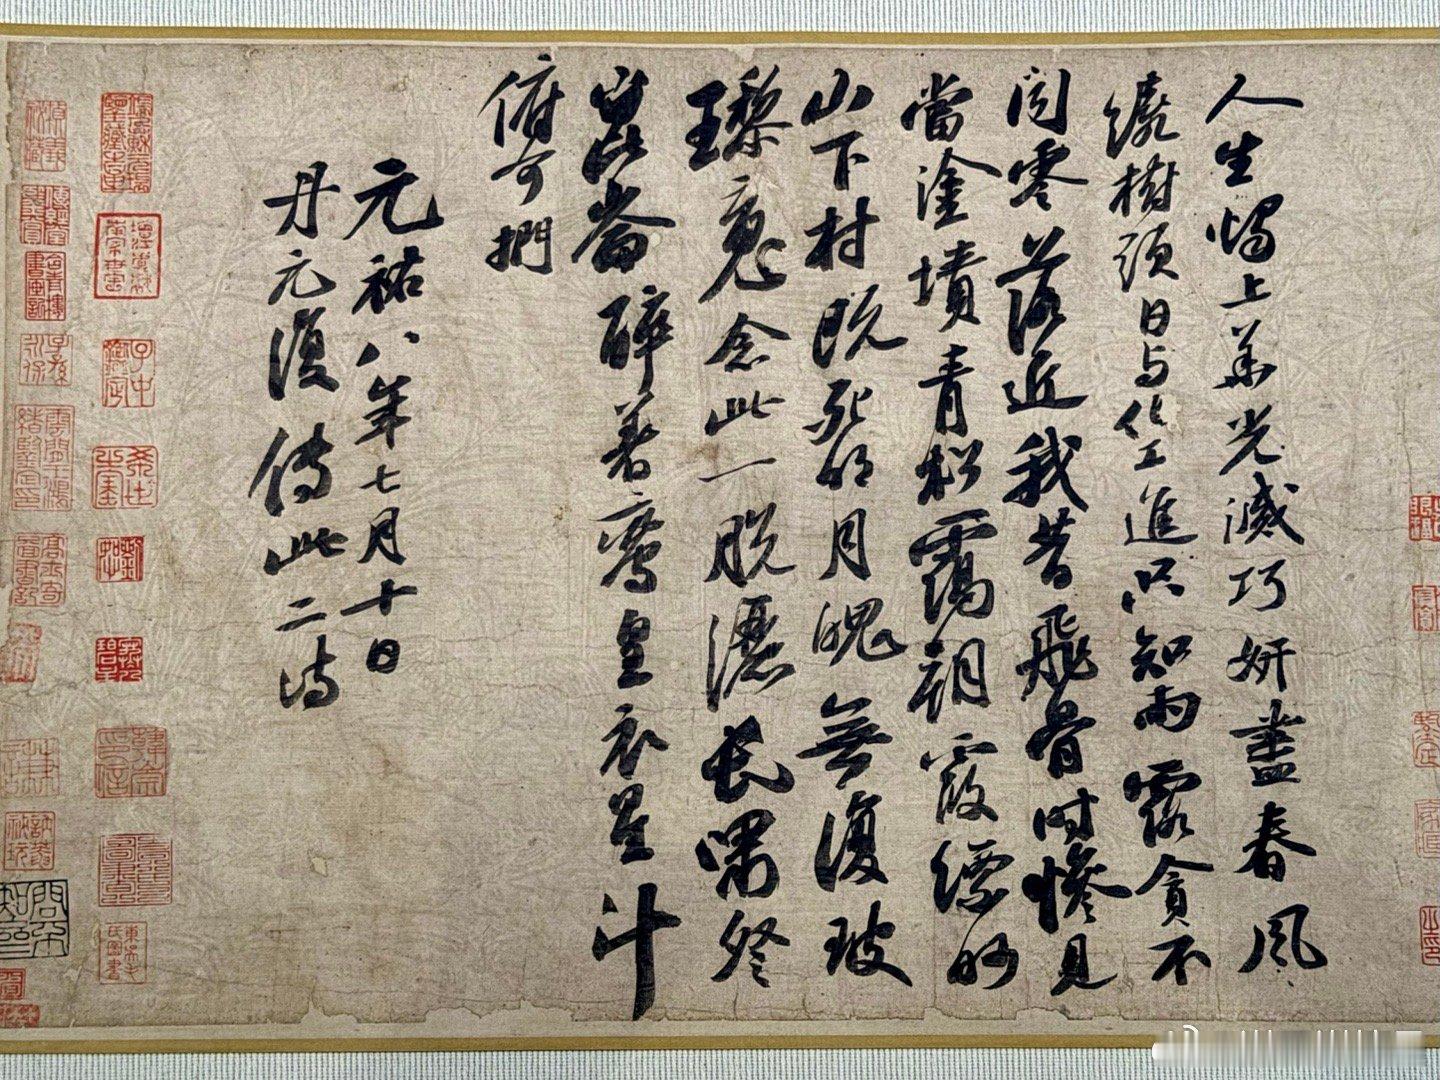 人生燭上華光滅巧妍盡春風
繞樹頭日與化工進只知雨露貪不
聞零落近我昔飛骨時慘見
當塗墳青松靄朝霞縹緲
山下村既死明月魄無復玻
瓈魂念此一脱灑長嘯祭
崑崙醉著鸞皇衣星斗
俯可捫
元祐八年七月十日
丹元復傳此二詩